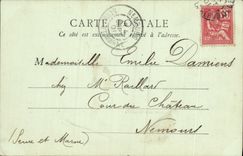 CARTE POSTALE
Ce côté est exclusivement réservé à l'adresse.
Mademoiselle Emilie Damiens
chez Mr Roullard
Cour du Château
Nemours
(Seine et Marne)